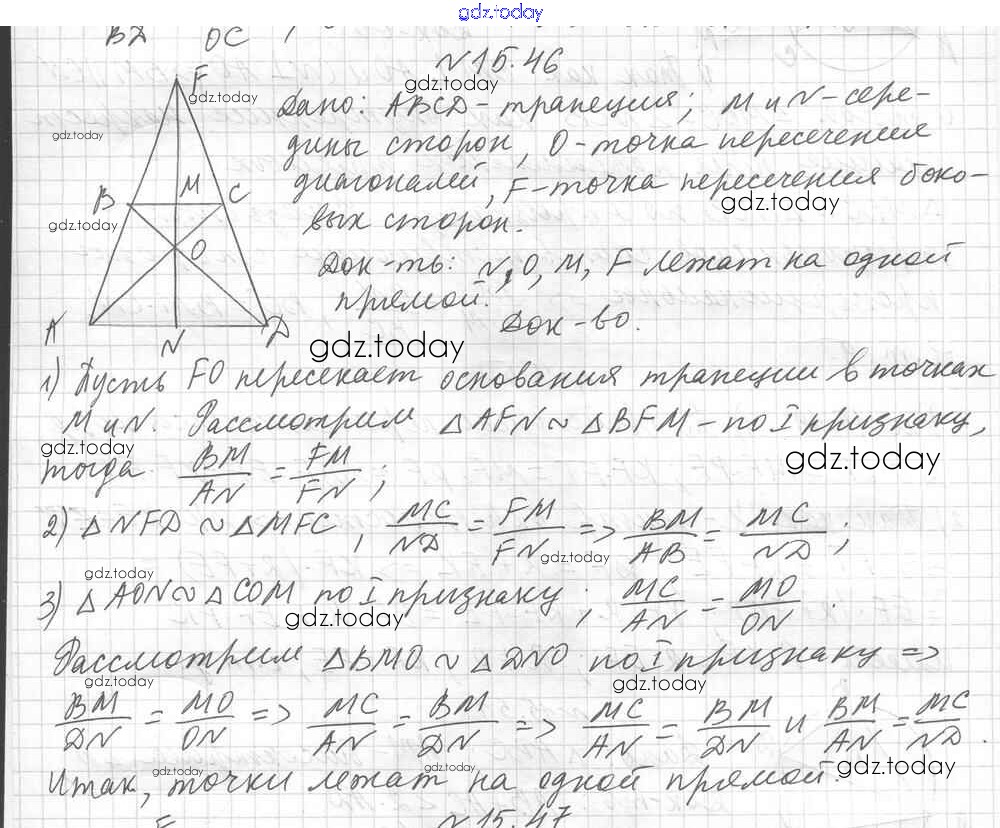 gdz.today
BD OC
№15.46
F
gdz.today
gdz.today
gdz.today
Дано: ABCD - трапеция; M и N - сере-
дины сторон, O - точка пересечения
диагоналей, F - точка пересечения боко-
вых сторон.
gdz.today
B M C
gdz.today
O
Док-ть: N, O, M, F лежат на одной
прямой.
Док-во.
A N D
gdz.today
1) Пусть FO пересекает основания трапеции в точках
M и N. Рассмотрим △AFN ~ △BFM - по I признаку,
gdz.today
gdz.today
тогда BM/AN = FM/FN;
2) △NFD ~ △MFC, MC/ND = FM/FN => BM/AB = MC/ND;
gdz.today
gdz.today
3) △AON ~ △COM по I признаку; MC/AN = MO/ON.
gdz.today
Рассмотрим △BMO ~ △DNO по I признаку =>
gdz.today
gdz.today
BM/DN = MO/ON => MC/AN = BM/DN => MC/AN = BM/DN и BM/AN = MC/ND.
gdz.today
gdz.today
gdz.today
Итак, точки лежат на одной прямой.
№15.47
F